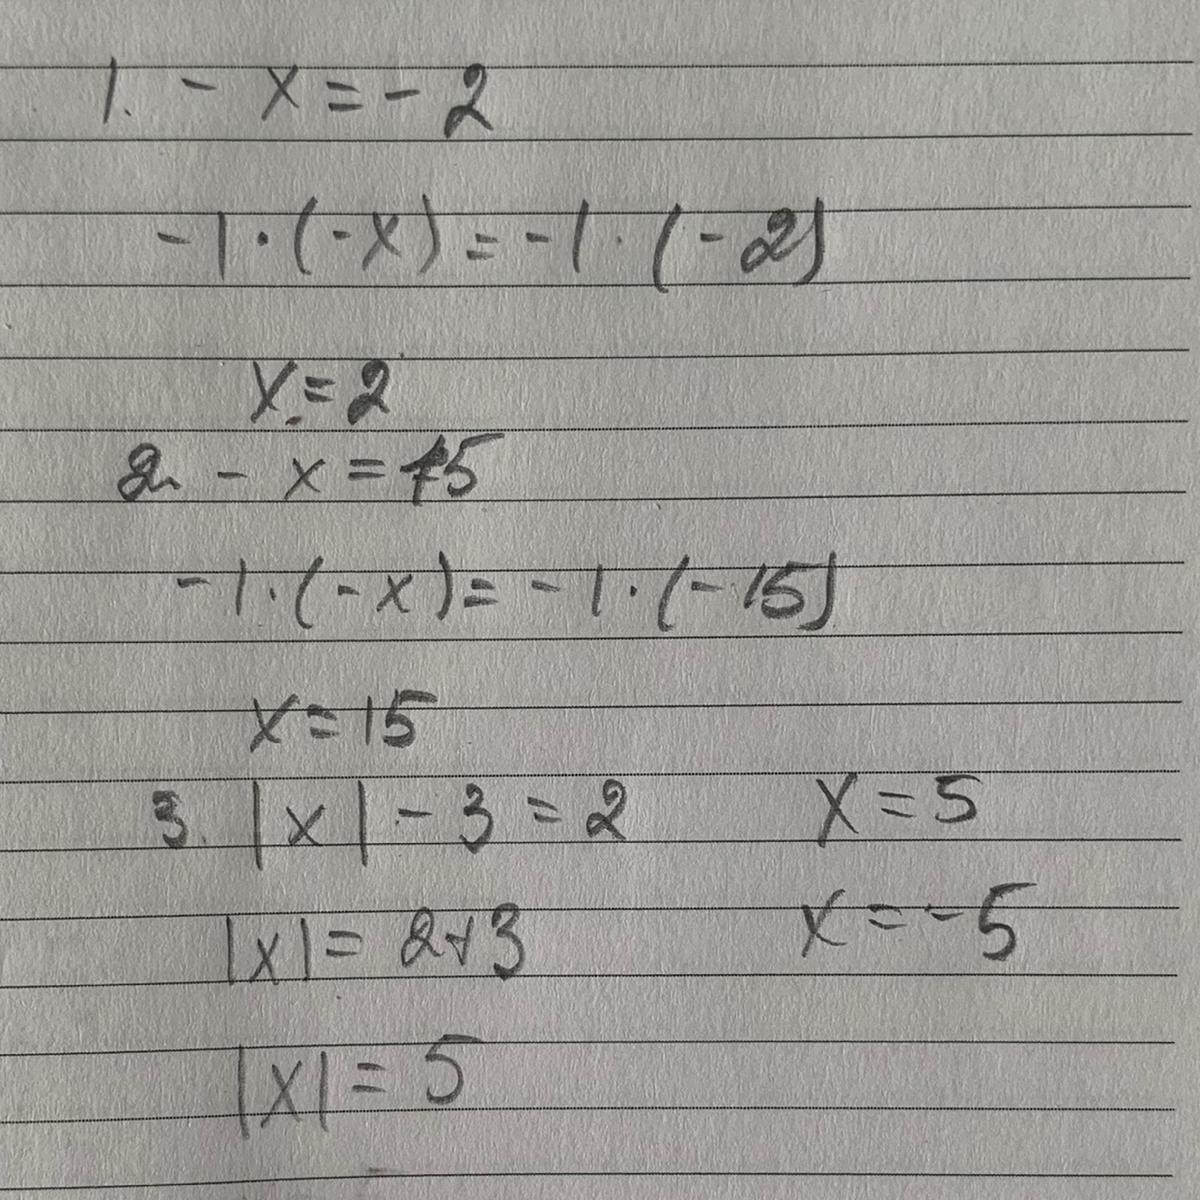 1. - x = - 2
-1 · (-x) = -1 · (-2)
x = 2
2. - x = 15
-1 · (-x) = -1 · (-15)
x = 15
3. |x| - 3 = 2
|x| = 2+3
|x| = 5
x = 5
x = -5